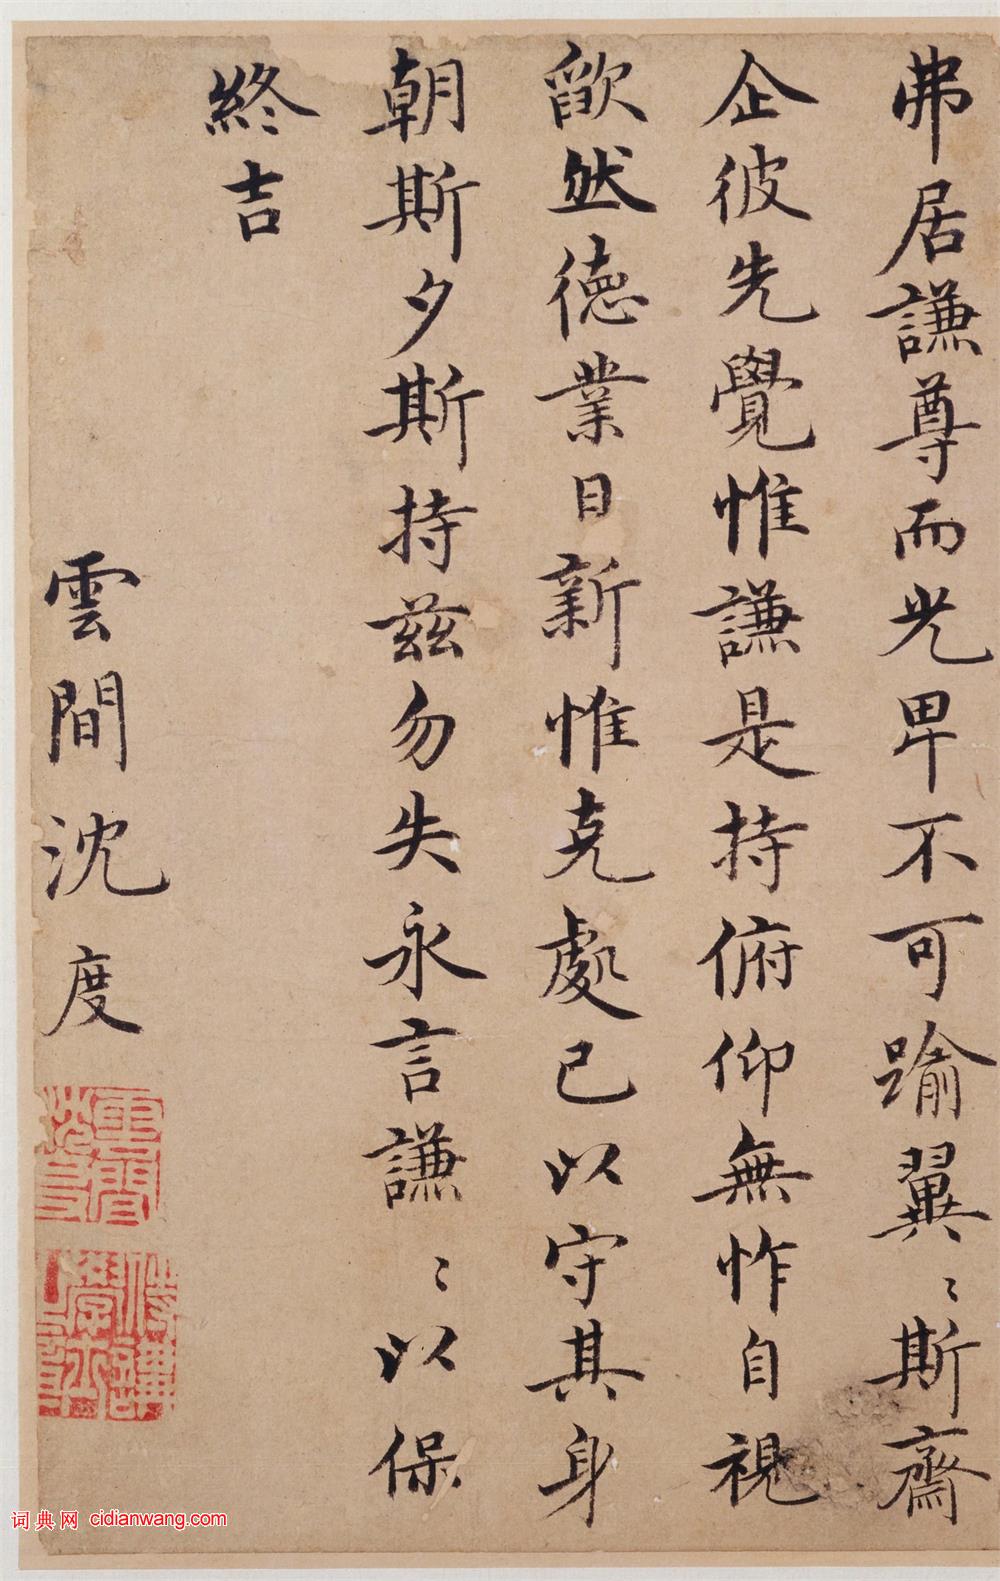 弗居謙尊而光卑不可踰翼〻斯齋
企彼先覺惟謙是持俯仰無怍自視
歉然德業日新惟克處己以守其身
朝斯夕斯持兹勿失永言謙〻以保
終吉
雲間沈度
詞典網 cidianwang.com